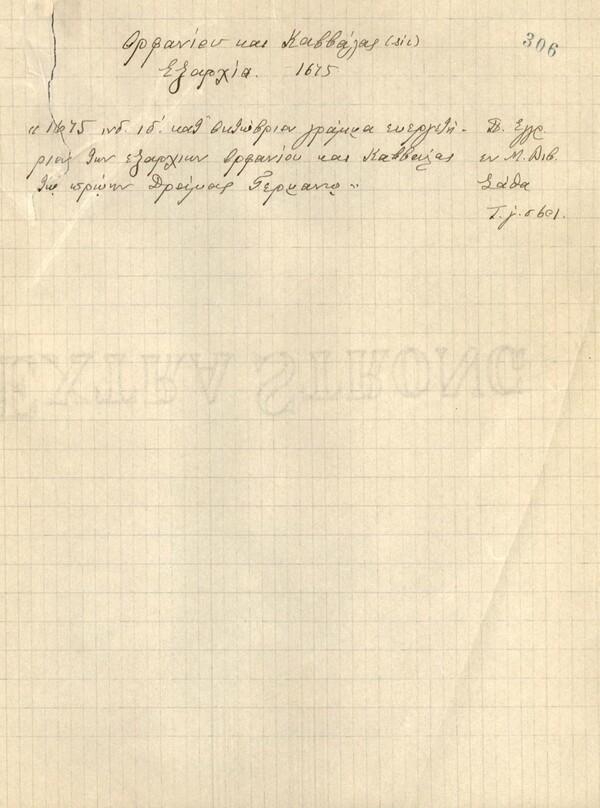 306
Ορφανίου και Καββάλας (sic)
Εξαρχία. 1675
« 1675 ινδ. ιδ'. κατ' Οκτώβριον γράμμα ευεργετή-
ριον των εξαρχιων Ορφανίου και Καββάλας
τῳ πρώην Δράμας Γερμανῳ »
Π. Εγγρ.
εν Μ. Βιβ.
Σάθα
Τ. γ. σ 601.
EXTRA STRONG